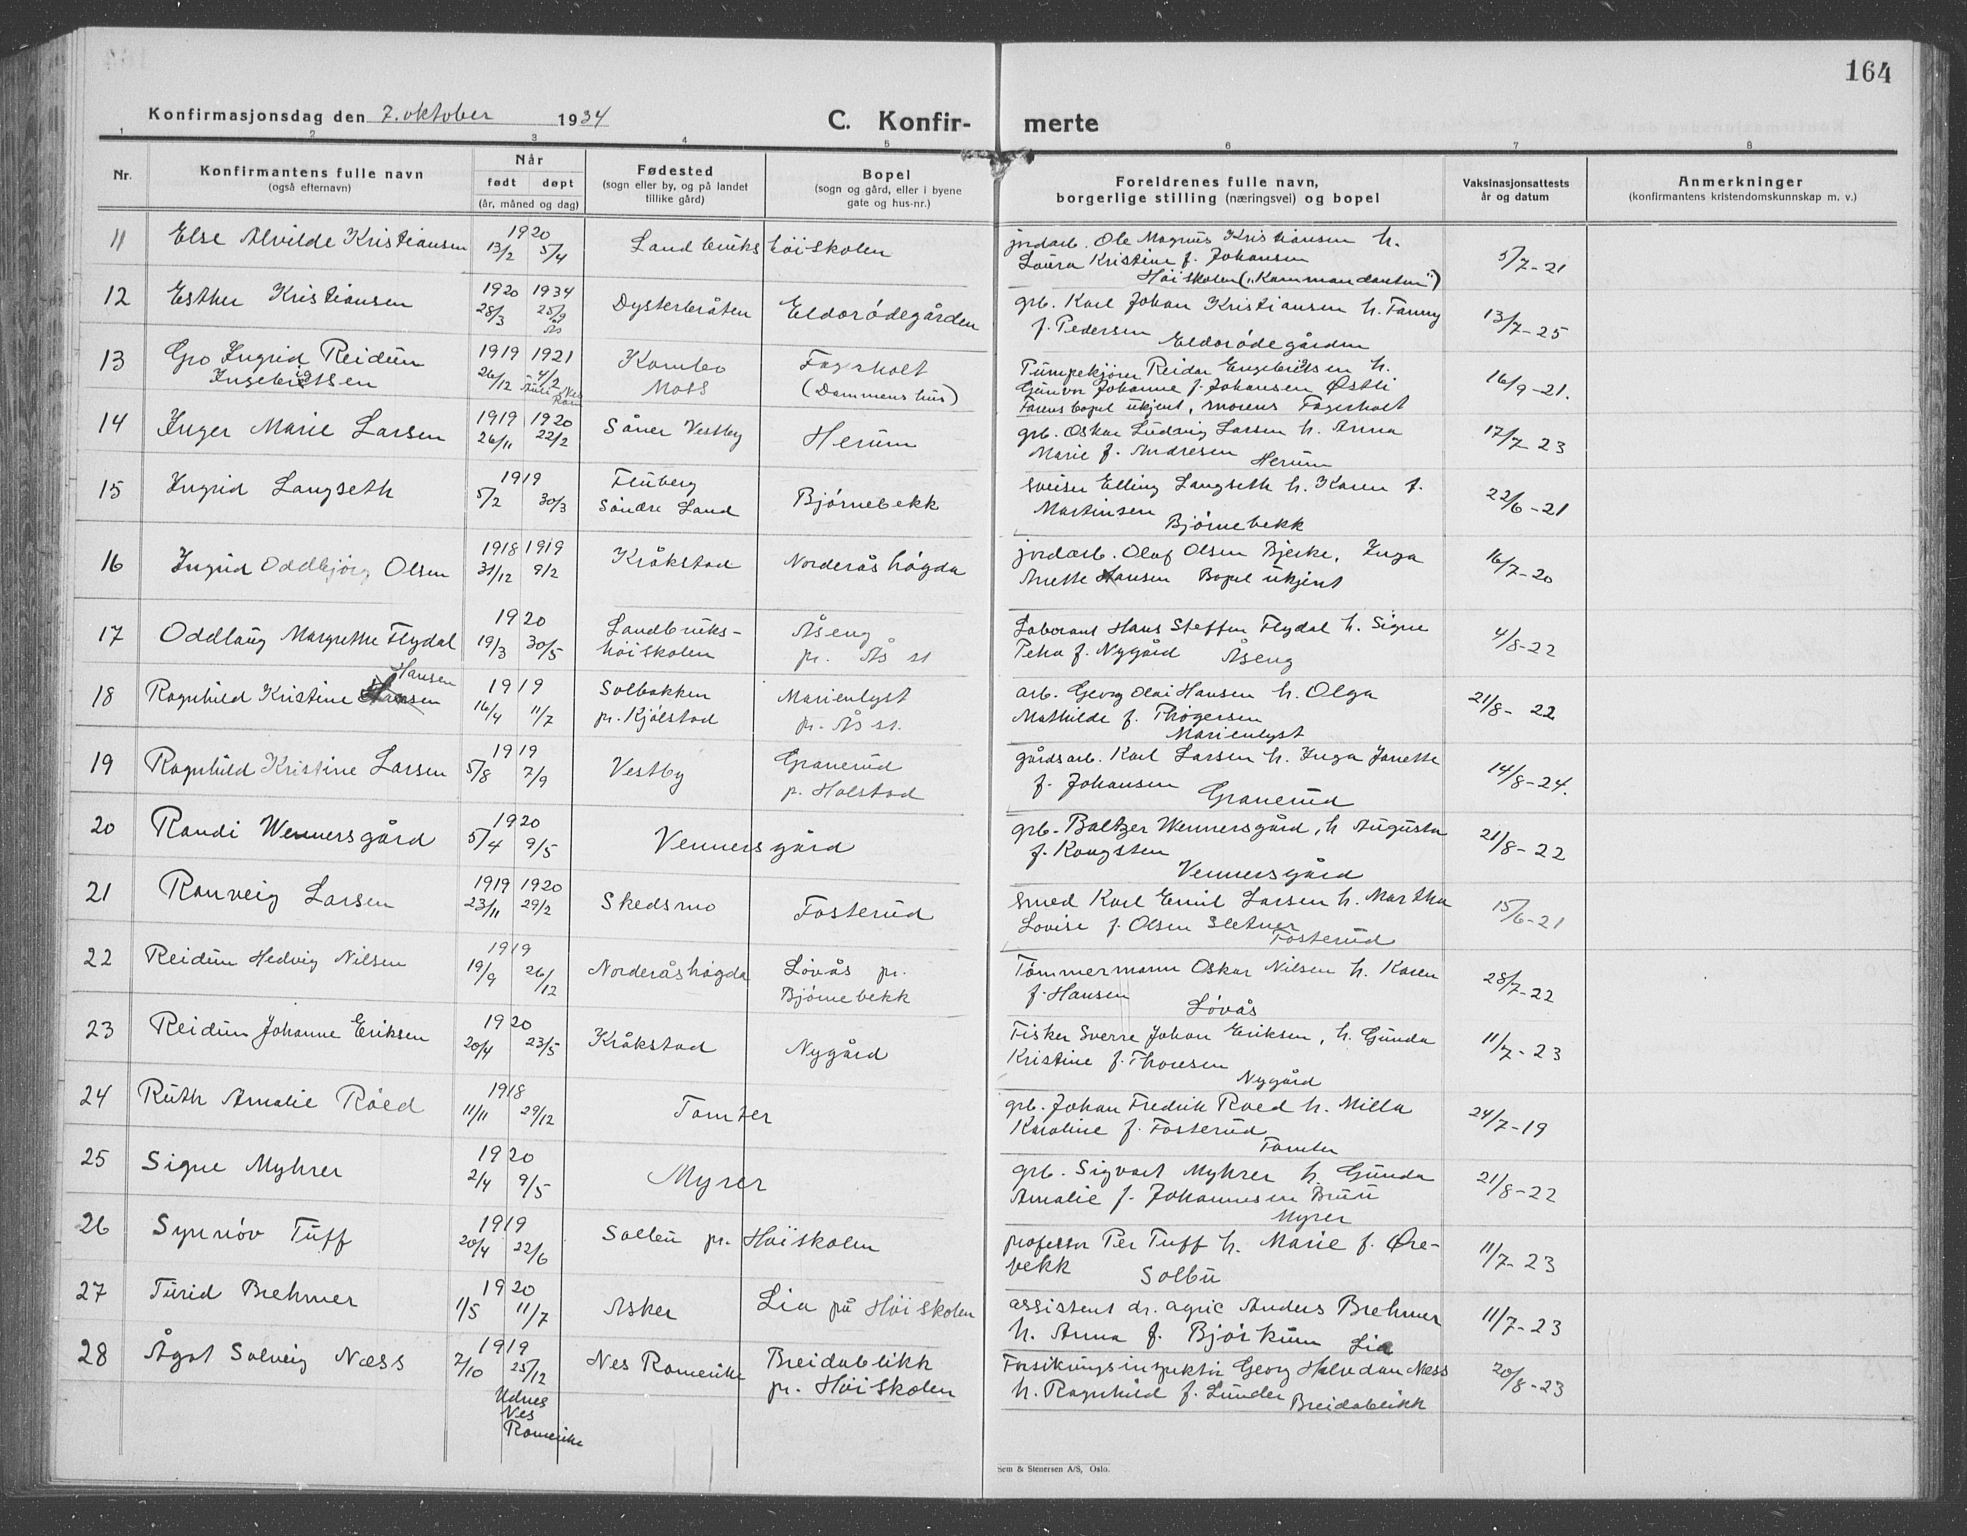 164
Konfirmasjonsdag den 7. oktober 1934
C. Konfir- merte
1 2 3 4 5 6 7 8
Nr.
Konfirmantens fulle navn
(også efternavn)
Når
født døpt
(år, måned og dag)
Fødested
(sogn eller by, og på landet
tillike gård)
Bopel
(sogn og gård, eller i byene
gate og hus-nr.)
Foreldrenes fulle navn,
borgerlige stilling (næringsvei) og bopel
Vaksinasjonsattests
år og datum
Anmerkninger
(konfirmantens kristendomskunnskap m. v.)
11 Else Alvilde Kristiansen 1920 13/2 5/4 Landbruks høiskolen
jordarb. Ole Magnus Kristiansen h.
Laura Kristine f. Johansen
Høiskolen ("Kommandanten") 5/7-21
12 Esther Kristiansen 1920 28/3 1934 25/9 Ås Dysterbråten Eldorødegården
grb. Karl Johan Kristiansen h. Fanny
f. Pedersen Eldorødegården 13/7-25
13 Gro Ingrid Reidun
Ingebrigtsen 1919 26/12 1921 4/2 Nes Rom Kambo
Moss Fagerholt
(Dammens hus)
Pumpekjører Reidar Engebretsen h.
Gunvor Johanne f. Johansen Østli
Farens bopel ukjent, morens Fagerholt 16/9-21.
14 Inger Marie Larsen 1919 26/11 1920 22/2 Såner Vestby Herum
grb. Oskar Ludvig Larsen h. Anna
Marie f. Andresen Herum 17/7-23
15 Ingrid Langseth 1919 5/2 30/3 Fluberg
Søndre Land Bjørnebekk
Sveiser Elling Langseth h. Karen f.
Martinsen
Bjørnebekk 22/6-21
16 Ingrid Oddbjørg Olsen 1918 31/12 1919 9/2 Kråkstad Norderåshøgda
jordarb. Olaf Olsen Bjerke, Inga
Anette Hansen Bopel ukjent 16/7-20
17 Oddlaug Margrethe Flydal 1920 19/3 30/5 Landbruks-
høiskolen Åseng
pr. Ås st
Laborant Hans Steffen Flydal h. Signe
Petra f. Nygård Åseng 4/8-22
18 Ragnhild Kristine Hansen 1919 16/4 11/7 Solbakken
pr. Kjølstad Marienlyst
pr. Ås st.
arb. Georg Olai Hansen h. Olga
Mathilde f. Thøgersen
Marienlyst 21/8-22
19 Ragnhild Kristine Larsen 1919 5/8 7/9 Vestby Granerud
p. Holstad
gårdsarb. Karl Larsen h. Inga Janette
f. Johansen Granerud 14/8-24.
20 Randi Wennersgård 1920 5/4 9/5 Vennersgård
grb. Baltzer Wennersgård, h Augusta
f. Kongsten
Vennersgård 21/8-22
21 Ranveig Larsen 1919 23/11 1920 29/2 Skedsmo Fosterud
Smed Karl Emil Larsen h. Martha
Lovise f. Olsen Sletner
Fosterud 15/6-21
22 Reidun Hedvig Nilsen 1919 19/9 26/12 Norderåshøgda Løvås pr.
Bjørnebekk
Tømmermann Oskar Nilsen h. Karen
f. Hansen
Løvås 28/7-22
23 Reidun Johanne Eriksen 1920 20/4 23/5 Kråkstad Nygård
Fisker Sverre Johan Eriksen, h. Gunda
Kristine f. Thoresen
Nygård 11/7-23
24 Ruth Amalie Røed 1918 11/11 29/12 Tomter
grb. Johan Fredrik Røed h. Milla
Karoline f. Fosterud
Tomter 24/7-19
25 Signe Myhrer 1920 2/4 9/5 Myrer
grb. Sigvart Myhrer h. Gunda
Amalie f. Johannesen Bruu
Myrer 21/8-22
26 Synnøv Tuff 1919 20/4 22/6 Solbu pr. Høiskolen
professor Per Tuff h. Marie f. Øre-
bekk Solbu 11/7-23
27 Turid Brehmer 1920 1/5 11/7 Asker Lia på Høiskolen
assistent dr. agric Anders Brehmer
h. Anna f. Bjørkum Lia 11/7-23
28 Ågot Solveig Næss 1919 7/10 25/12 Nes Romerike Breidablikk
pr. Høiskolen
Udnes
Nes
Romerike
Forsikringsinspektør Georg Halvdan Næss
h. Ragnhild f. Lunder Breidablikk 20/8-23
Sem & Stenersen A/S, Oslo.